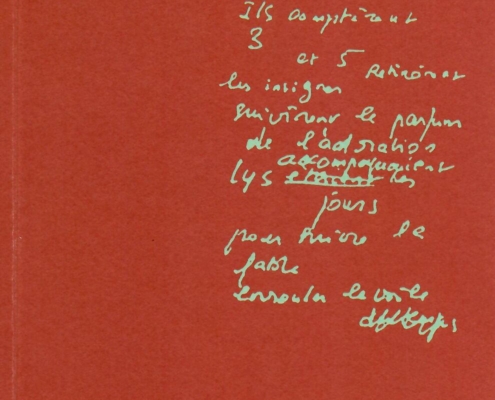 Ils comptèrent
3
et 5 Retirèrent
les insignes
suivirent le parfum
de l'adoration
accompagnaient
lys les
jours
pour suivre la
fable
enrouler le voile